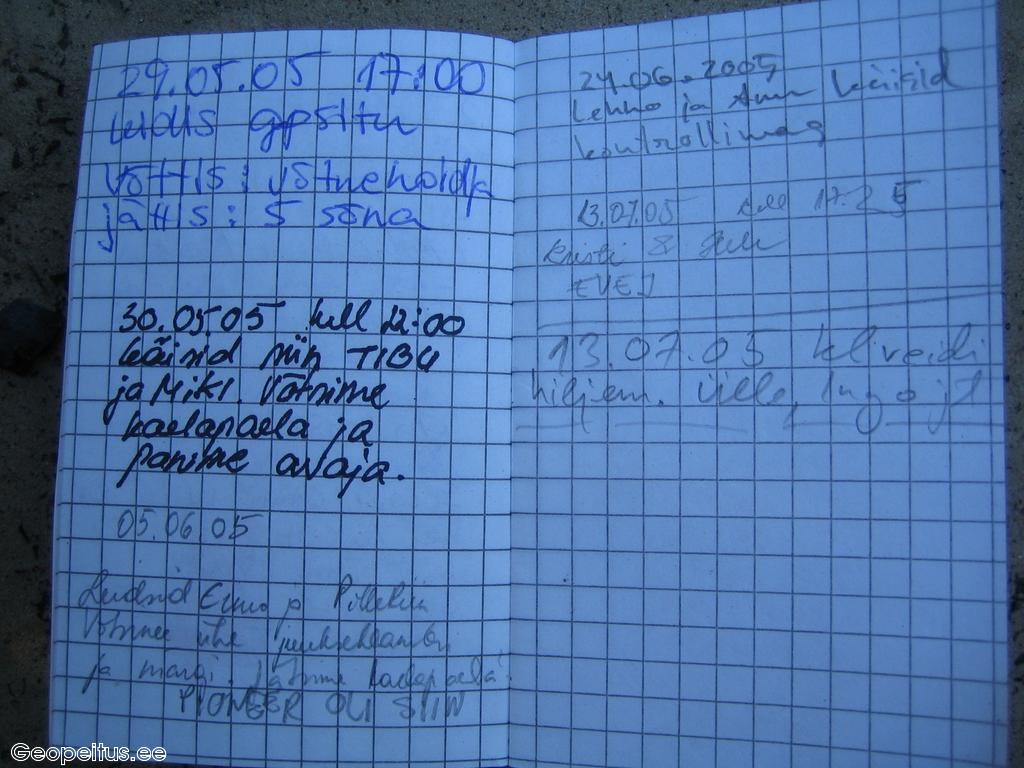 29.05.05 17:00
leidis gpsitu
võttis: võtmehoidja
jättis: 5 sõna
30.05.05 kell 22:00
käisid siin TIBU
ja MIKI. Võtsime
kaelapaela ja
panime avaja.
05.06.05
Leidsid ja
Võtsime ühe
ja margi. Jätsime kaelapaela
PIONEER OLI SIIN
24.06.2005
Lehho ja käisid
kontrollimas
13.07.05 kell 17.25
Kristi &
13.07.05 kl veidi
hiljem. Ülle, Ingo jt
Geopeitus.ee